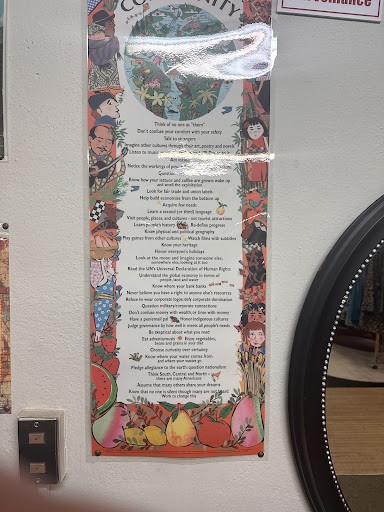 CO
NITY
Think of no one as "them"
Don't confuse your comfort with your safety
Talk to strangers
Imagine other cultures through their art, poetry and novels
Listen to music
Notice the workings of
Question
Know how your lettuce and coffee are grown: wake up
and smell the exploitation
Look for fair trade and union labels
Help build economies from the bottom up
Acquire few needs
Learn a second (or third) language
Visit people, places, and cultures - not tourist attractions
Learn people's history Re-define progress
Know physical and political geography
Play games from other cultures Watch films with subtitles
Know your heritage
Honor everyone's holidays
Look at the moon and imagine someone else,
somewhere else, looking at it too
Read the UN's Universal Declaration of Human Rights
Understand the global economy in terms of
people, land and water
Know where your bank banks
Never believe you have a right to anyone else's resources
Refuse to wear corporate logos: defy corporate domination
Question military/corporate connections
Don't confuse money with wealth, or time with money
Have a pen/email pal Honor indigenous cultures
Judge governance by how well it meets all people's needs
Be skeptical about what you read
Eat adventurously Enjoy vegetables,
beans and grains in your diet
Choose curiosity over certainty
Know where your water comes from
and where your wastes go
Pledge allegiance to the earth: question nationalism
Think South, Central and North –
there are many Americans
Assume that many others share your dreams
Know that no one is silent though many are not heard
Work to change this